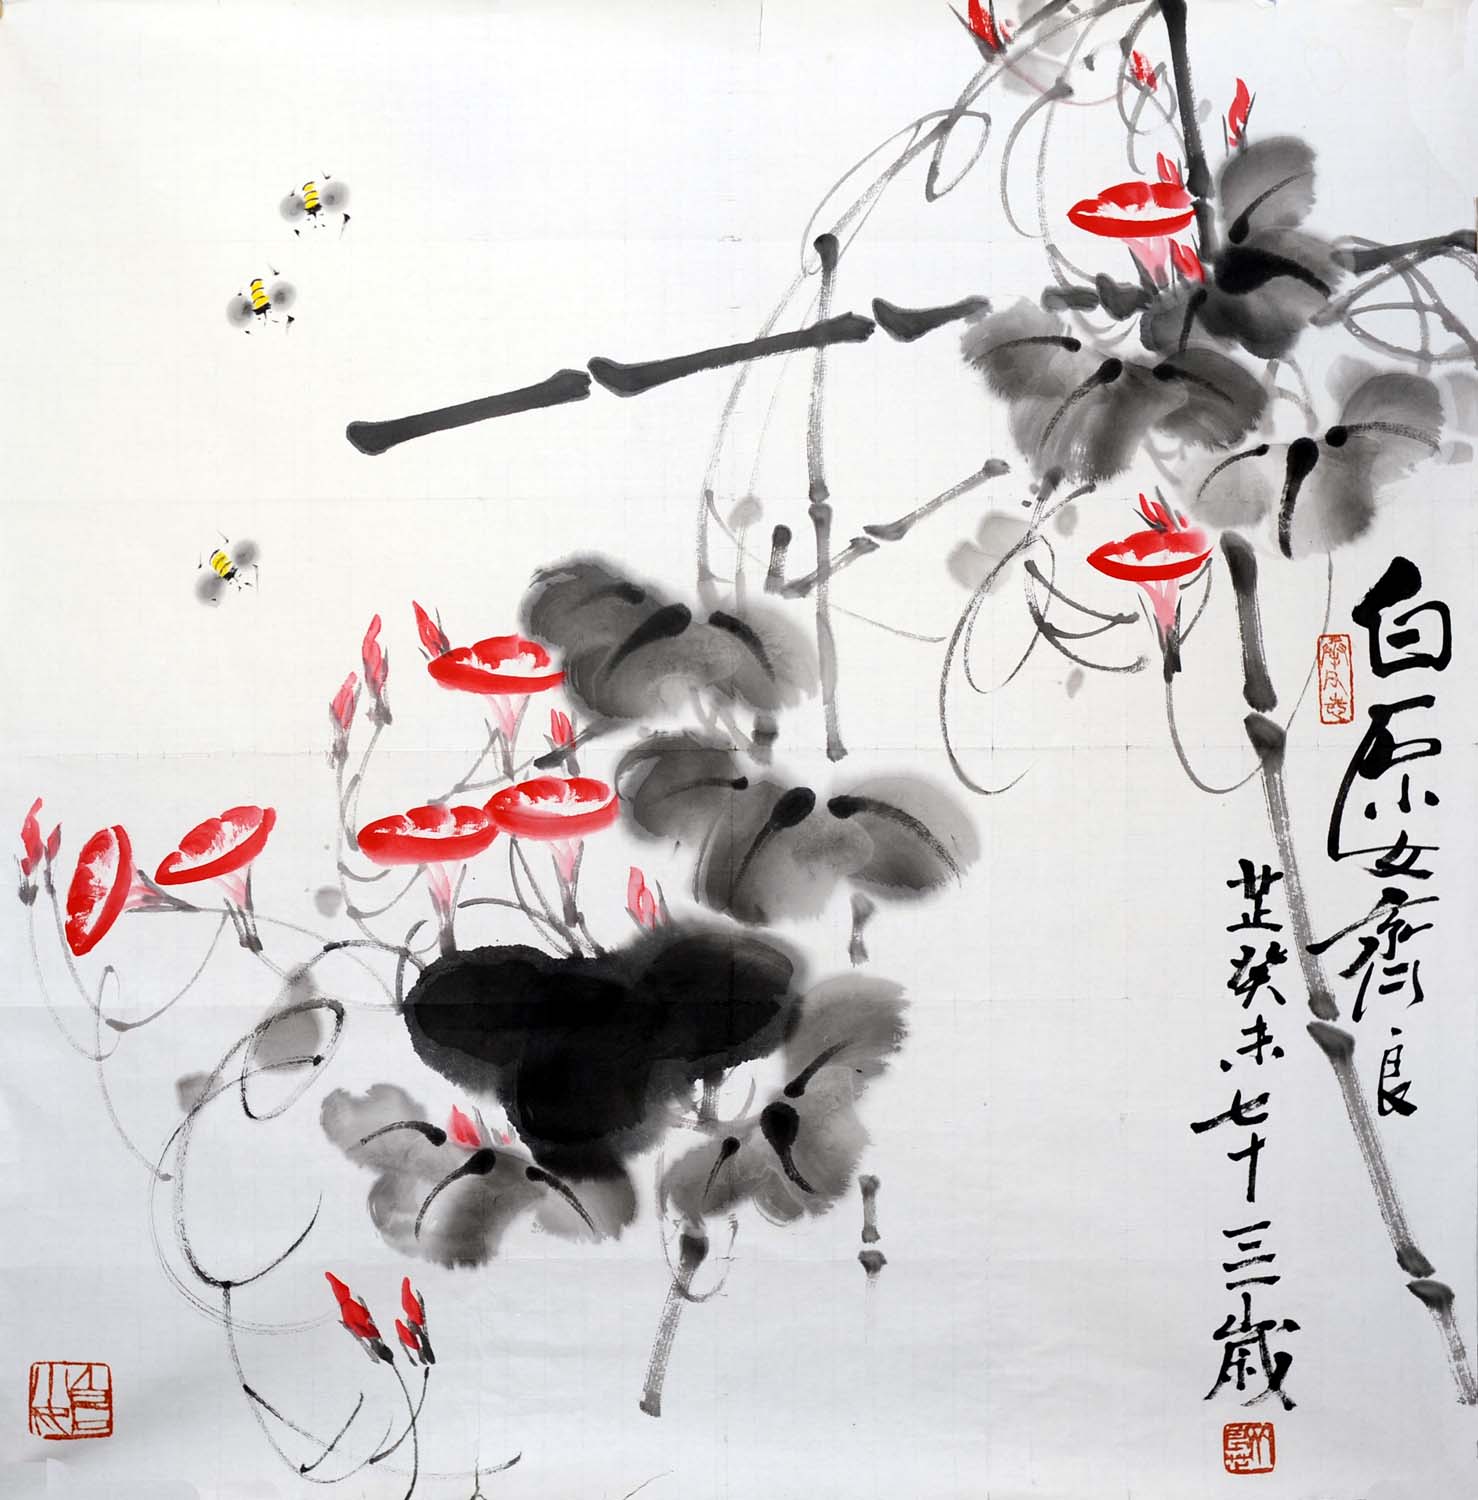 白石小女齐良
芷癸未七十三歲